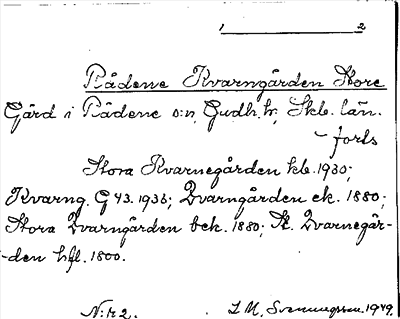 1 2
Rådene Kvarngården Store
Gård i Rådene s:n, Gudh. hr, Skb. län.
~ forls
Stora Kvarnegården kb. 1930;
Kvarng. G 43. 1935; Qvarngården ek. 1880;
Stora Qvarngården bek. 1880; St. Qvarnegår-
-den hfl. 1800.
N:r 2. I. M. Svennungsson. 1949.